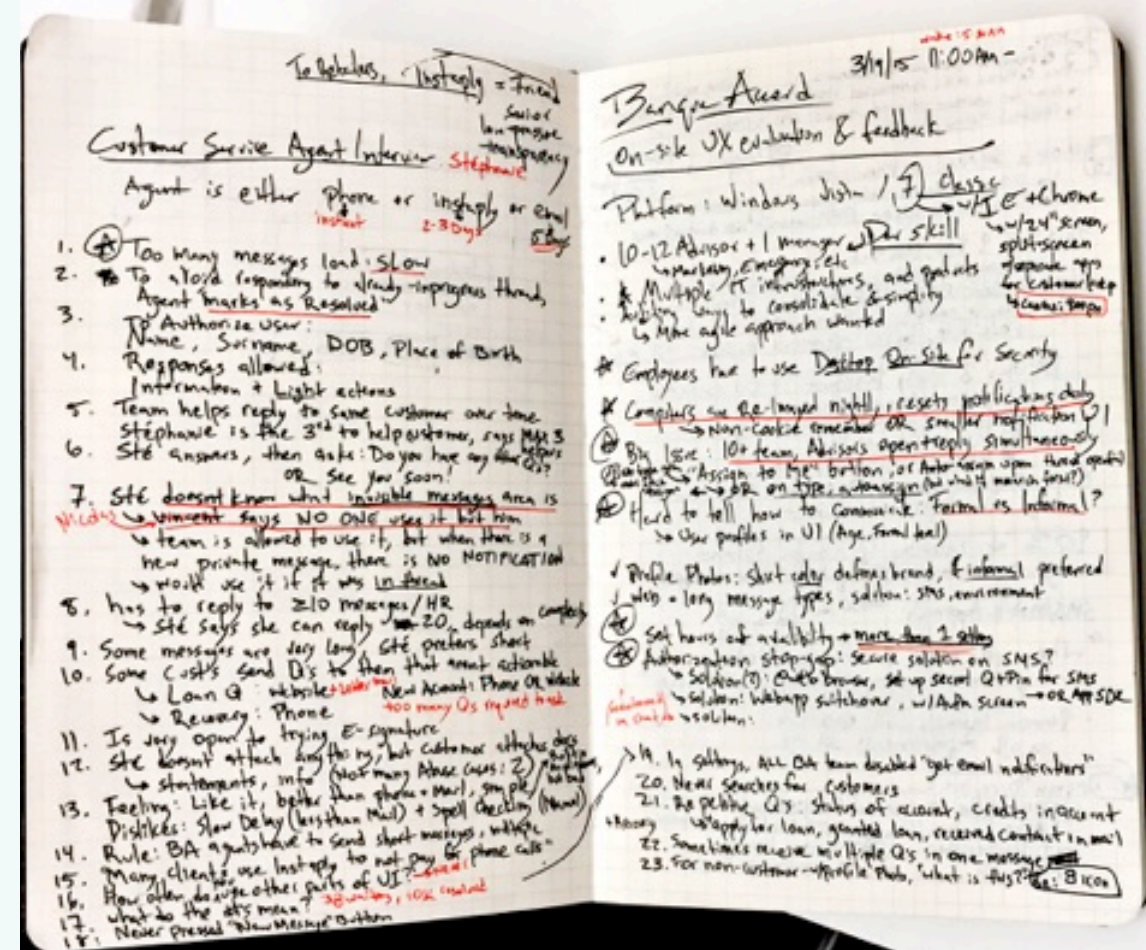 To Rebolars, Instaply = Friend
Savior
low-pressure
transparency
Customer Service Agent Interview Stéphanie
Agent is either phone or instaply or email
instant 2-3 Days 5 Days
1. Too many messages load: SLOW
2. To avoid responding to already-inprogress threads,
Agent marks as Resolved
3. To Authorize user:
Name, Surname, DOB, Place of Birth
4. Responses allowed:
Information + Light actions
5. Team helps reply to same customer over time
Stéphanie is the 3rd to help customer, says
6. Sté answers, then asks: Do you have any Q's?
OR See you soon!
7. Sté doesnt know what invisible messages area is
Nicolas Vincent says NO ONE uses it but him
team is allowed to use it, but when there is a
new private message, there is NO NOTIFICATION
would use it if it was in thread
8. has to reply to ≥10 messages/HR
Sté says she can reply 20, depends on complexity
9. Some messages are very long, Sté prefers short
10. Some Cust's send Q's to them that arent actionable
Loan Q: website New Account: Phone OR website
Phone too many Qs
11. Is very open to trying E-signature
12. Sté doesnt attach anything, but customer attaches docs
statements, info (Not many Abuse cases: 2)
13. Feeling: Like it, better than phone + Mail, simple
Dislikes: Slow Delay (less than Mail) + Spell Checking (Manual)
14. Rule: BA agents have to send short messages,
15. Many clients use Instaply to not pay for phone calls
16. How often do other parts of UI?
17. what do the #'s mean?
18. Never pressed "New Message" Button
3/19/15 11:00AM -
Banque Accord
On-site UX evaluation & feedback
Platform: Windows Vista / 7 Classic
w/IE + Chrome
w/24" screen,
split-screen
10-12 Advisor + 1 manager
Marketing, Emergency, etc
Multiple IT infrastructures, and products
ways to consolidate & simplify
More agile approach wanted
Employees have to use Desktop On-Site for Security
Computers are Re-Imaged nightly, resets notifications daily
Non-cookie remember OR smaller notification UI
Big Issue: 10+ team, Advisors open+reply simultaneously
"Assign to Me" button, or Auto-assign upon thread open
OR on type, autoassign
Hard to tell how to Communicate: Formal vs Informal?
User profiles in UI (Age, Formal)
Profile Photos: Shirt color defines brand, & informal preferred
Web = long message types, solution: SMS, environment
Set hours of availibility → more than 1 setting
Authorization stop-gap: Secure solution on SMS?
Solution(?): Browser, set up secret Q+Pin for SMS
solution: Webapp switchover, w/Auth screen → OR App SDK
solution:
19. In settings, ALL BA team disabled "get email notifications"
20. Never searches for customers
21. Repetitive Q's: status of account, credits in account
apply for loan, granted loan, received contract in mail
22. Sometimes receive multiple Q's in one message
23. For non-customer → Profile Photo, "what is this?"